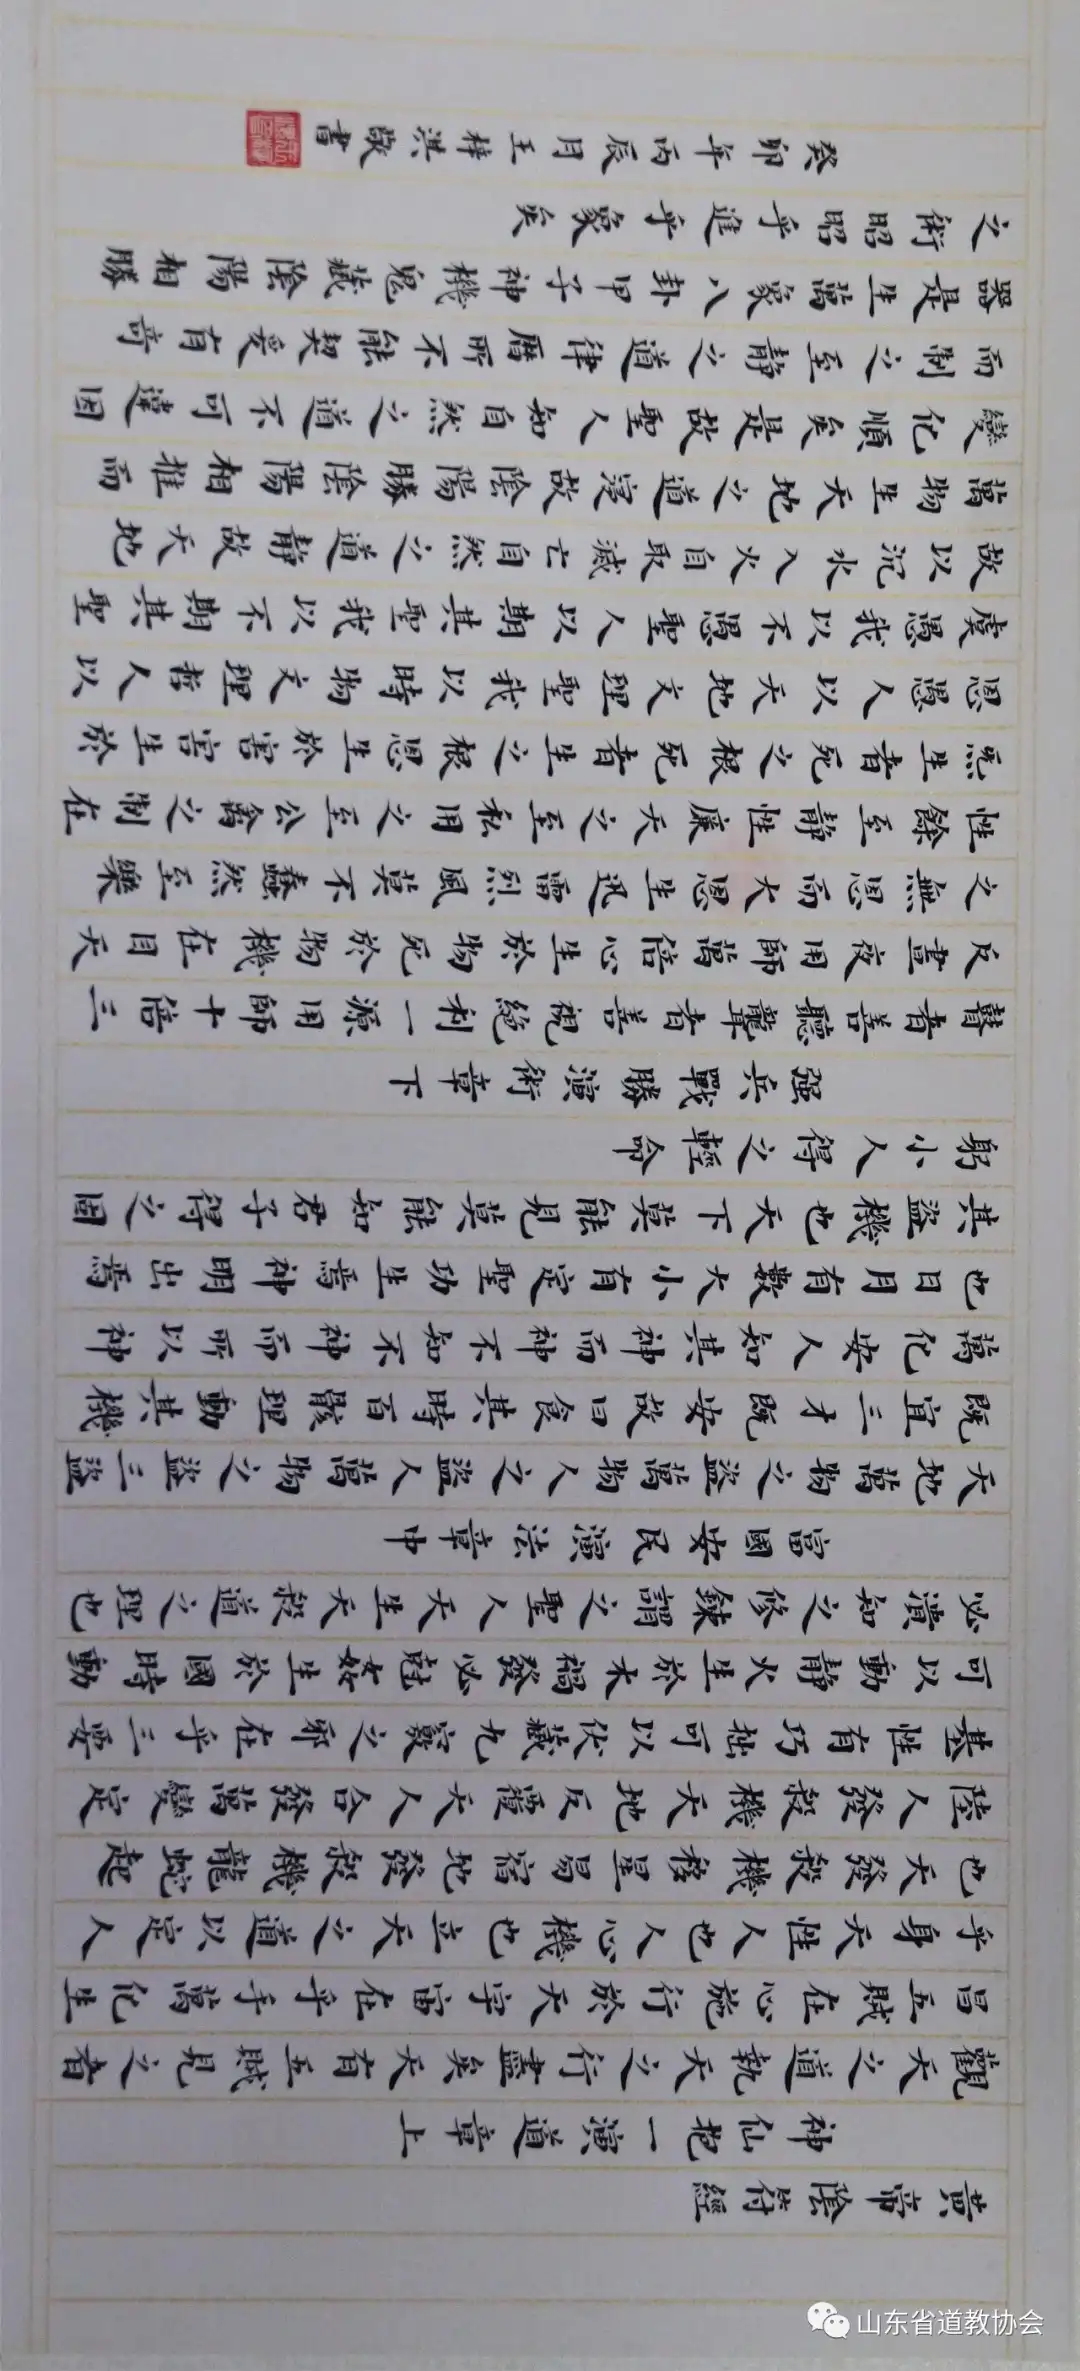 黃帝陰符經
神仙抱一演道章上
觀天之道執天之行盡矣天有五賊見之者
昌五賊在心施行於天宇宙在乎手萬化生
乎身天性人也人心機也立天之道以定人
也天發殺機移星易宿地發殺機龍蛇起
陸人發殺機天地反覆天人合發萬變定
基性有巧拙可以伏藏九竅之邪在乎三要
可以動靜火生於木禍發必尅奸生於國時動
必潰知之修鍊謂之聖人天生天殺道之理也
富國安民演法章中
天地萬物之盜萬物人之盜人萬物之盜三盜
既宜三才既安故曰食其時百骸理動其機
萬化安人知其神而神不知不神而所以神
也日月有數大小有定聖功生焉神明出焉
其盜機也天下莫能見莫能知君子得之固
躬小人得之輕命
强兵戰勝演術章下
瞽者善聽聾者善視絕利一源用師十倍三
反晝夜用師萬倍心生於物死於物機在目天
之無恩而大恩生迅雷烈風莫不蠢然至樂
性餘至靜性廉天之至私用之至公禽之制在
炁生者死之根死者生之根恩生於害害生於
恩愚人以天地文理聖我以時物文理哲人以
虞愚我以不愚聖人以期其聖我以不期其聖
故以沉水入火自取滅亡自然之道靜故天地
萬物生天地之道浸故陰陽勝陰陽相推而
變化順矣是故聖人知自然之道不可違因
而制之至靜之道律曆所不能契爰有奇
器是生萬象八卦甲子神機鬼藏陰陽相勝
之術昭昭乎進乎象矣
癸卯年丙辰月王梓淇敬書
山东省道教协会